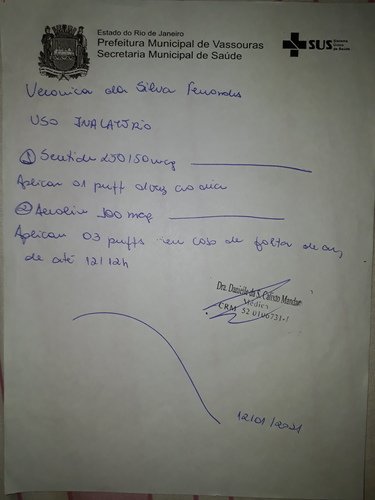 Estado do Rio de Janeiro
Prefeitura Municipal de Vassouras
Secretaria Municipal de Saúde
SUS Sistema Único de Saúde
Veronica da Silva Fernandes
USO INALATÓRIO
① Seretide 250/50mcg
Aplicar 01 puff 2x ao dia
② Aerolin 100 mcg
Aplicar 03 puffs em caso de falta de ar,
de até 12/12h
Dra. Danielle da S. Calixto
Médica
CRM 52
12/01/2021